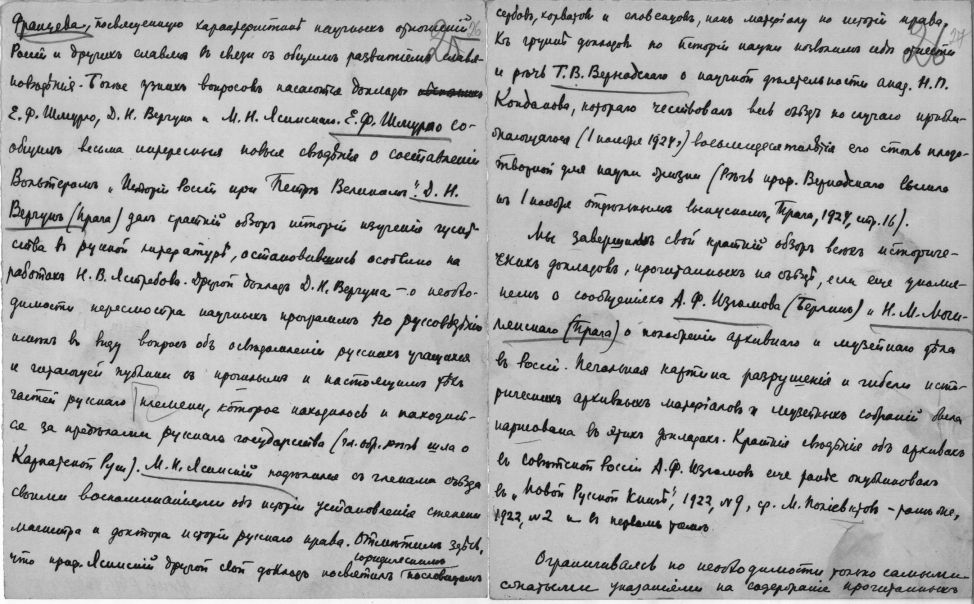 Францева, посвященную характеристикѣ научныхъ отношеній
Россіи и другихъ славянъ въ связи съ общимъ развитіемъ славя-
новѣдѣнія. Болѣе узкихъ вопросовъ касаются доклады
Е. Ф. Шмурло, Д. Н. Вергуна и М. Н. Ясинскаго. Е. Ф. Шмурло со-
общилъ весьма интересныя новыя свѣдѣнія о составленіи
Вольтеромъ „Исторіи Россіи при Петрѣ Великомъ". Д. Н.
Вергунъ (Прага) далъ краткій обзоръ исторіи изученія гусит-
ства въ русской литературѣ, остановившись особенно на
работахъ Н. В. Ястребова. Другой докладъ Д. Н. Вергуна – о необхо-
димости пересмотра научныхъ программъ по руссовѣдѣнію
имѣлъ въ виду вопросъ объ освѣдомленіи русскихъ учащихся
и читающей публики съ прошлымъ и настоящимъ тѣхъ
частей русскаго племени, которое находилось и находит-
ся за предѣлами русскаго государства (гл. обр. рѣчь шла о
Карпатской Руси). М. Н. Ясинскій подѣлился съ членами съѣзда
своими воспоминаніями объ исторіи установленія степени
магистра и доктора исторіи русскаго права. Отмѣтимъ здѣсь,
что проф. Ясинскій другой свой докладъ посвятилъ юридическимъ пословицамъ
26
27
сербовъ, хорватовъ и словенцевъ, какъ матеріалу по исторіи права.
Къ группѣ докладовъ по исторіи науки позволимъ себѣ отнести
и рѣчь Г. В. Вернадскаго о научной дѣятельности акад. Н. П.
Кондакова, котораго чествовалъ весь съѣздъ по случаю прибли-
жающагося (1 ноября 1924 г.) восьмидесятилѣтія его столь плодо-
творной для науки жизни (Рѣчь проф. Вернадскаго вышла
къ 1 ноября отдѣльнымъ выпускомъ, Прага, 1924, стр. 16).
Мы завершимъ свой краткій обзоръ всѣхъ историче-
скихъ докладовъ, прочитанныхъ на съѣздѣ, если еще упомя-
немъ о сообщеніяхъ А. Ф. Изюмова (Берлинъ) и Н. М. Моги-
лянскаго (Прага) о положеніи архивнаго и музейнаго дѣла
въ Россіи. Печальная картина разрушенія и гибели исто-
рическихъ архивныхъ матеріаловъ и музейныхъ собраній была
нарисована въ этихъ докладахъ. Краткія свѣдѣнія объ архивахъ
въ совѣтской Россіи А. Ф. Изюмовъ еще ранѣе опубликовалъ
въ „Новой Русской Книгѣ", 1922, №9, ср. М. Поліевктовъ – тамъ же,
1922, №2 и въ первомъ томѣ.
Ограничиваясь по необходимости только самыми
сжатыми указаніями на содержаніе прочитанныхъ